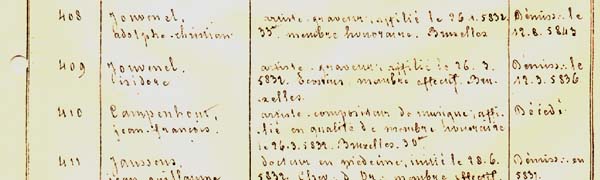 408 Jouvenel, artiste-graveur, affilié le 26.1.5832 Démiss. le
adolphe-christian 33me. membre honoraire. Bruxelles 12.8.5843
409 Jouvenel, artiste-graveur, affilié le 26.3. Démiss. le
isidore 5832. membre effectif. Bru- 12.3.5836
xelles.
410 Campenhout, artiste-compositeur de musique, affi- Décédé
jean-françois. lié en qualité de membre honoraire
le 26.3.5832. Bruxelles.
411 Janssens, docteur en médecine, initié le 28.6. Démiss. en
jean-guillaume 5832. membre effectif. 583